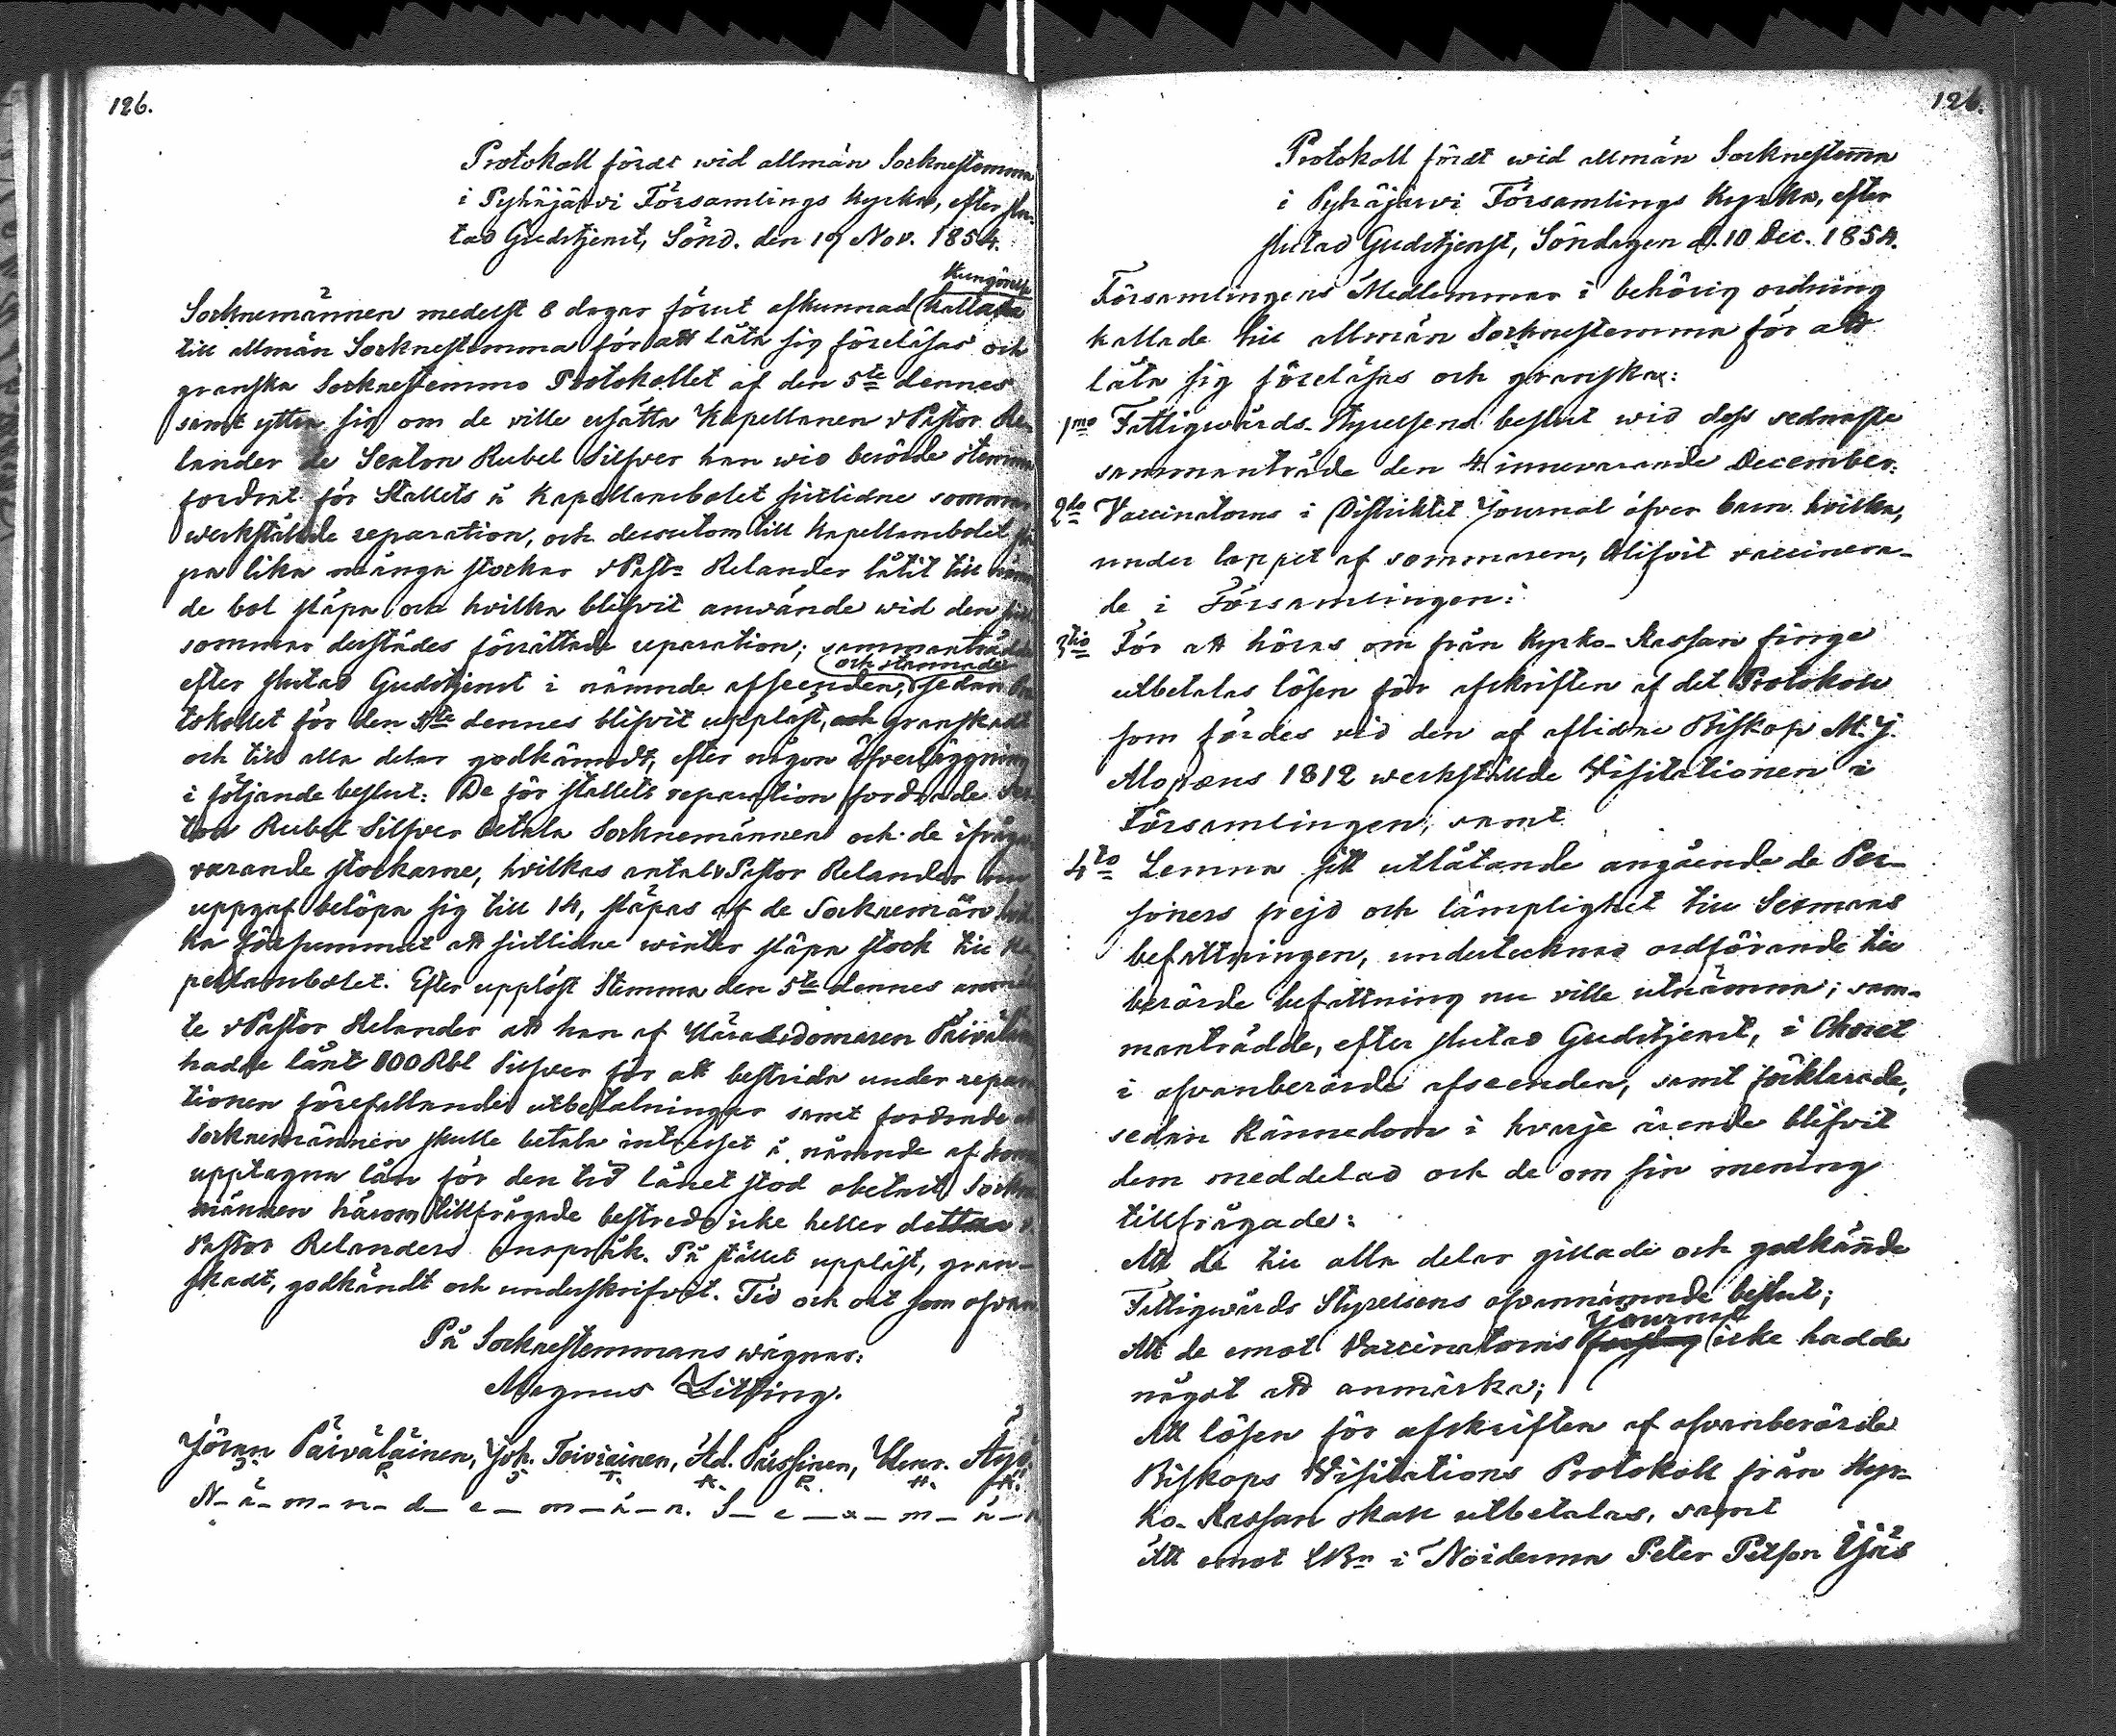 126.
Protokoll fördt wid allmän Socknestemma
i Pyhäjärvi Församlings Kyrka, efter slu-
tad Gudstjenst, Sönd. den 19 Nov. 1854.
Kungörelse
Socknemännen medelst 8 dagar förut afkunnad kallade
till allmän Socknestemma för att låta sig föreläsas och
granska Socknestemmo Protokollet af den 5te dennes
samt yttra sig om de ville ersätta Kapellanen v Pastor Re-
lander de Sexton Rubel Silfver han wid berörde stemma
fordrat för Stallets å Kapellansbolet sistlidne sommar
werkstälde reparation, och dessutom till Kapellansbolet slä-
pa lika många stockar v Past: Relander låtit till nämn
de bol släpa och hvilka blifvit använde wid den sist
sommar derstädes förrättade reparation; sammanträdde
och stannade
efter slutad Gudstjenst i nämnde afseenden, sedan Pro
tokollet för den 5te dennes blifvit uppläst, och granskadt
och till alla delar godkändt, efter någon öfverläggning
i följande beslut: De för stallets reparation fordrade Sex-
ton Rubel Silfver betala Socknemännen och de ifråga
varande stockarne, hvilkas antal v Pastor Relander
uppgaf belöpa sig till 14, släpas af de Socknemän hvil-
ka försummat att sistlidne winter släpa stock till Ka
pellansbolet. Efter upplöst Stemma den 5te dennes anmäl
te v Pastor Relander att han af Häradsdomaren Päiväläinen
hadde lånt 100 Rbl Silfver för att bestrida under repara
tionen förefallande utbetalningar samt fordrade at
Socknemännen skulle betala intresset å nämnde af honom
upptagna lån för den tid lånet stod obetalt. Sockne
männen härom tillfrågade bestredo icke heller detta v.
Pastor Relanders anspråk. På stället uppläst, gran-
skadt, godkändt och underskrifvit. Tid och ort som ofvan
På Socknestemmans wägnar:
Magnus Litfing.
Jöran Päiväläinen, Joh. Toiviainen, Ad. Pässinen, Henr. Äyö
N- ä- m- n- d- e- m- ä- n. S- e- x- m- ä- n
126.
Protokoll fördt wid allmän Socknestemma
i Pyhäjärvi Församlings Kyrka, efter
slutad Gudstjenst, Söndagen d. 10 Dec. 1854.
Församlingens Medlemmar i behörig ordning
kallade till allmän Socknestemma för att
låta sig föreläsas och granska:
1mo Fattigwårds-Styrelsens beslut wid dess sednaste
sammanträde den 4 innevarande December:
2do Vaccinatorns i Distriktet Journal öfver barn hvilka,
under loppet af sommaren, blifvit vaccinera-
de i Församlingen:
3tio För att höras om från Kyrko-Kassan finge
utbetalas lösen för afskriften af det Protokoll
som fördes vid den af aflidne Biskop M. J.
Alopæus 1812 werkställde Visitationen i
Församlingen; samt
4to Lemna sitt utlåtande angående de Per-
soners frejd och lämplighet till Sexmans
befattningen, undertecknad ordförande till
berörde befattning nu ville utnämna; sam-
manträdde, efter slutad Gudstjenst, i Choret
i ofvanberörde afseenden, samt förklarade,
sedan kännedom i hvarje ärende blifvit
dem meddelad och de om sin mening
tillfrågade:
Att de till alla delar gillade och godkände
Fattigwårds Styrelsens ofvannämnde beslut;
Journal
Att de emot Vaccinatorns icke hadde
något att anmärka;
Att lösen för afskriften af ofvanberörde
Biskops Visitations Protokoll från Kyr-
ko-Kassan skall utbetalas, samt
Att emot LBn i Noidermaa Peter Petson Ijäs